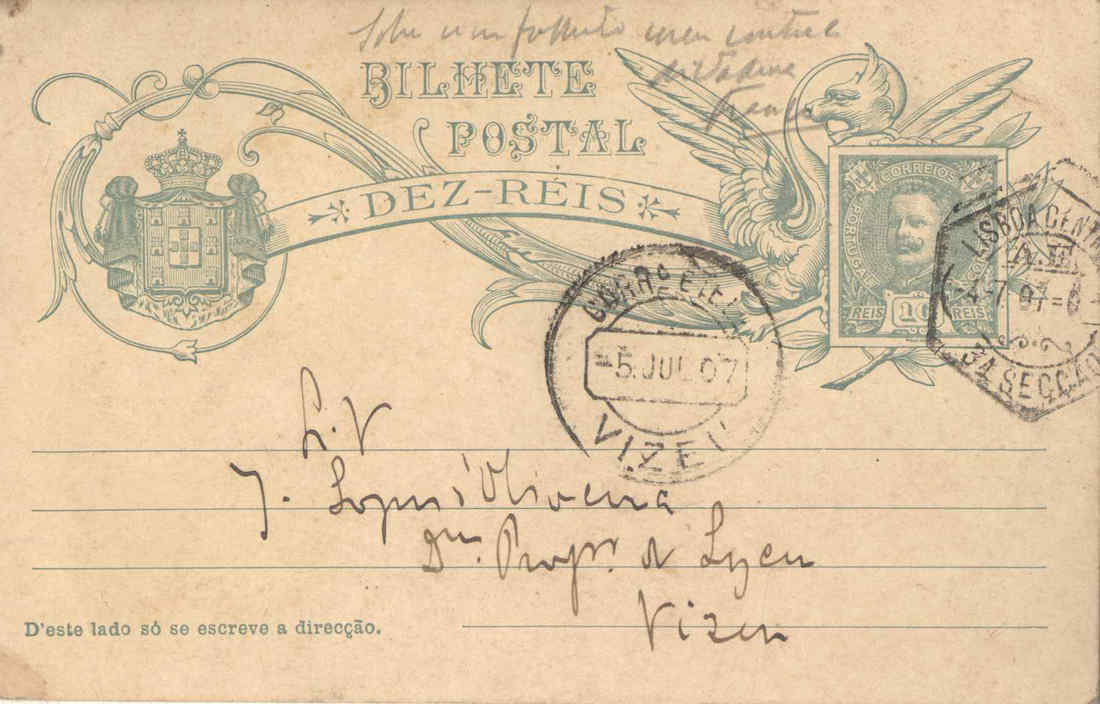 Sobre um folheto meu contra a
dictadura
Franco
BILHETE
POSTAL
DEZ-RÉIS
CORREIOS
PORTUGAL
REIS 10 REIS
LISBOA CENT
4-7 07=6
3A SECÇÃO
CORRO E TEL
5 JUL 07
VIZEU
J. Lopes d'Oliveira
Dm. Profr. do Lyceu
Vizeu
D'este lado só se escreve a direcção.